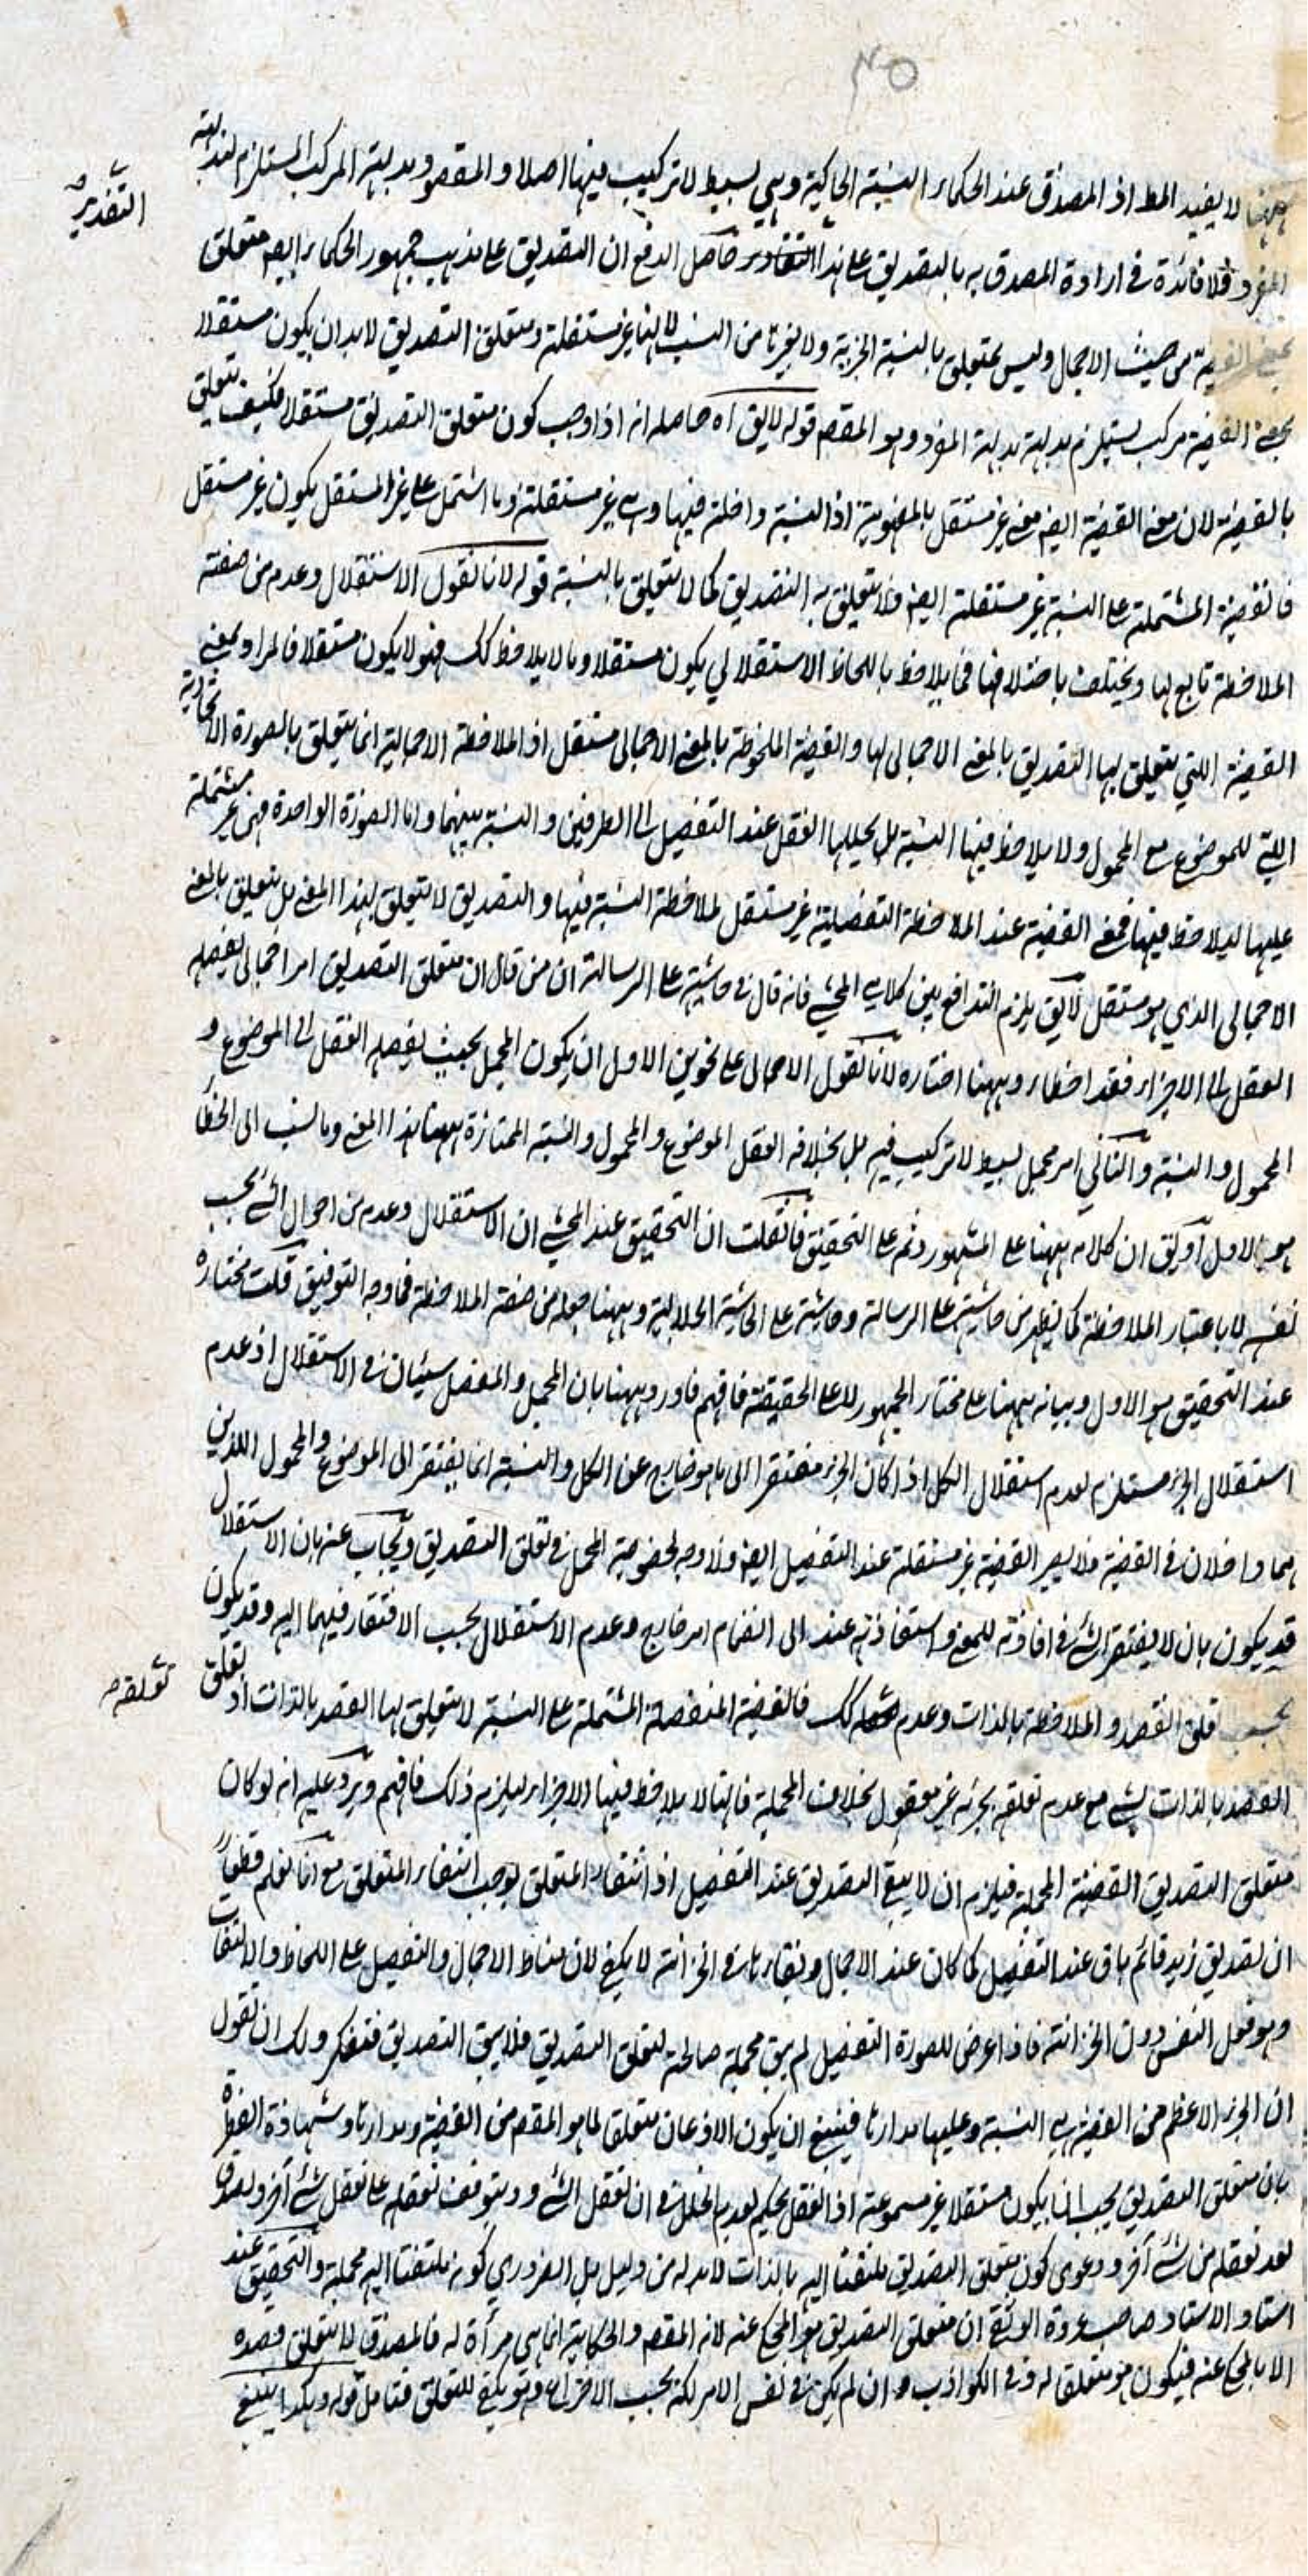 ٣٥
ههنا لا يفيد المط اذ المصدق عند الحكماء النسبة الحاكية وهي بسيط لا تركيب فيها اصلا والمقصود بداهة المركب المستلزم لبداهة
التقدير صح
المفرد فلا فائدة في ارادة المصدق به بالتصديق على هذا التقادير حاصل الدفع ان التصديق على مذهب جمهور الحكماء ايضا متعلق
بمعنى القضية من حيث الاجمال وليس بمتعلق بالنسبة الجزئية ولا بغيرها من النسب لانها غير مستقلة ومتعلق التصديق لا بد ان يكون مستقلا
فمعنى القضية مركب يستلزم بداهة بداهة المفرد وهو المقصم قوله لا يق اه حاصله انه اذا وجب كون متعلق التصديق مستقلا فكيف يتعلق
بالقضية لان معنى القضية ايضا معنى غير مستقل بالمفهومية اذ النسبة داخلة فيها وهي غير مستقلة وما اشتمل على غير المستقل يكون غير مستقل
فالقضية المشتملة على النسبة غير مستقلة ايضا فلا يتعلق به التصديق كما لا يتعلق بالنسبة قوله لانا نقول الاستقلال وعدمه من صفة
الملاحظة تابع لها ويختلف باختلافها فما يلاحظ باللحاظ الاستقلالي يكون مستقلا وما لا يلاحظ كك فهو لا يكون مستقلا فالمراد بمعنى
القضية التي يتعلق بها التصديق بالمعنى الاجمالي لها والقضية الملحوظة بالمعنى الاجمالي مستقل اذ الملاحظة الاجمالية انما يتعلق بالصورة الاتحادية
التي للموضوع مع المحمول ولا يلاحظ فيها النسبة بل يحللها العقل عند التفصيل الى الطرفين والنسبة بينهما واما الصورة الواحدة فهي غير مشتملة
عليها ليلاحظ فيها فمعنى القضية عند الملاحظة التفصيلية غير مستقل لملاحظة النسبة فيها والتصديق لا يتعلق بهذا المعنى بل يتعلق بالمعنى
الاجمالي الذي هو مستقل لا يق يلزم التدافع بين كلامي المحشي فانه قال في حاشيته على الرسالة ان من قال ان متعلق التصديق امر اجمالي يفصله
العقل الى الاجزاء فقد اخطأ وههنا اختاره لانا نقول الاجمال على نحوين الاول ان يكون المجمل بحيث يفصله العقل الى الموضوع و
المحمول والنسبة والثاني امر مجمل بسيط لا تركيب فيه بل بخلافه العقل الموضوع والمحمول والنسبة الممتازة ههنا هذا المعنى وما نسب الى الخطأ
هو الاول او يق ان كلامه ههنا على المشهور وثم على التحقيق فان قلت ان التحقيق عند المحشي ان الاستقلال وعدمه من احوال الشئ بحسب
نفسه لا باعتبار الملاحظة كما يظهر من حاشيته على الرسالة وحاشيته على الحاشية الجلالية وههنا جعله من صفة الملاحظة فما وجه التوفيق قلت مختاره
عند التحقيق هو الاول وبيانه ههنا على مختار الجمهور لا على الحقيقة فافهم فاورد ههنا بان المجمل والمفصل سيان في الاستقلال اذ عدم
استقلال الجزء مستلزم لعدم استقلال الكل اذا كان الجزء مفتقرا الى ما هو خارج عن الكل والنسبة انما يفتقر الى الموضوع والمحمول اللذين
هما داخلان في القضية فلا يصير القضية غير مستقلة عند التفصيل ايضا فلا وجه لخصوصية المجمل في تعلق التصديق ويجاب عنه بان الاستقلال
قد يكون بان لا يفتقر الشئ في افادته للمعنى واستفادته عنه الى انضمام امر خارج وعدم الاستقلال بحسب الافتقار فيهما اليه وقد يكون
بحسب تعلق القصد والملاحظة بالذات وعدم كك فالقضية المفصلة المشتملة على النسبة لا يتعلق بها القصد بالذات اذ تعلق
تعلقه صح
القصد بالذات بشئ مع عدم تعلقه بجزئه غير معقول بخلاف المجملة فانها لا يلاحظ فيها الاجزاء ليلزم ذلك فافهم ويرد عليه انه لو كان
متعلق التصديق القضية المجملة فيلزم ان لا يبقى التصديق عند التفصيل اذ انتفاء المتعلق يوجب انتفاء المتعلق مع انا نعلم قطعا
ان تصديق زيد قائم باق عند التفصيل كما كان عند الاجمال وبقاءها في الخزانة لا يكفي لان مناط الاجمال والتفصيل على اللحاظ والالتفات
وهو فعل النفس دون الخزانة فاذا عرض للصورة التفصيل لم يبق مجملة صالحة لتعلق التصديق فلا يبقى التصديق فتفكر ولك ان تقول
ان الجزء الاعظم من القضية هي النسبة وعليها مدارها فينبغي ان يكون الاذعان متعلقا لما هو المقصم من القضية ومدارها وشهادة الفطرة
بان متعلق التصديق يجب ان يكون مستقلا غير مسموعة اذ العقل يحكم بعدم الخلل في ان تعقل الشئ ويتوقف تعقله على تعقل شئ آخر ويصدق
بعد تعقله من شئ آخر ودعوى كون متعلق التصديق ملتفتا اليه بالذات لا بد له من دليل بل الضروري كونه ملتفتا اليه مجملة والتحقيق عند
استاد الاستاد صاحب عروة الوثقى ان متعلق التصديق هو المحكي عنه لانه المقصم والحكاية انما هي مرآة له فالمصدق لا يتعلق قصده
الا بالمحكي عنه فيكون هو متعلقا له وفي الكواذب وان لم يكن في نفس الامر لكنه بحسب الاختراع وهو يكفي للتعلق فتأمل قوله وهكذا ينبغي